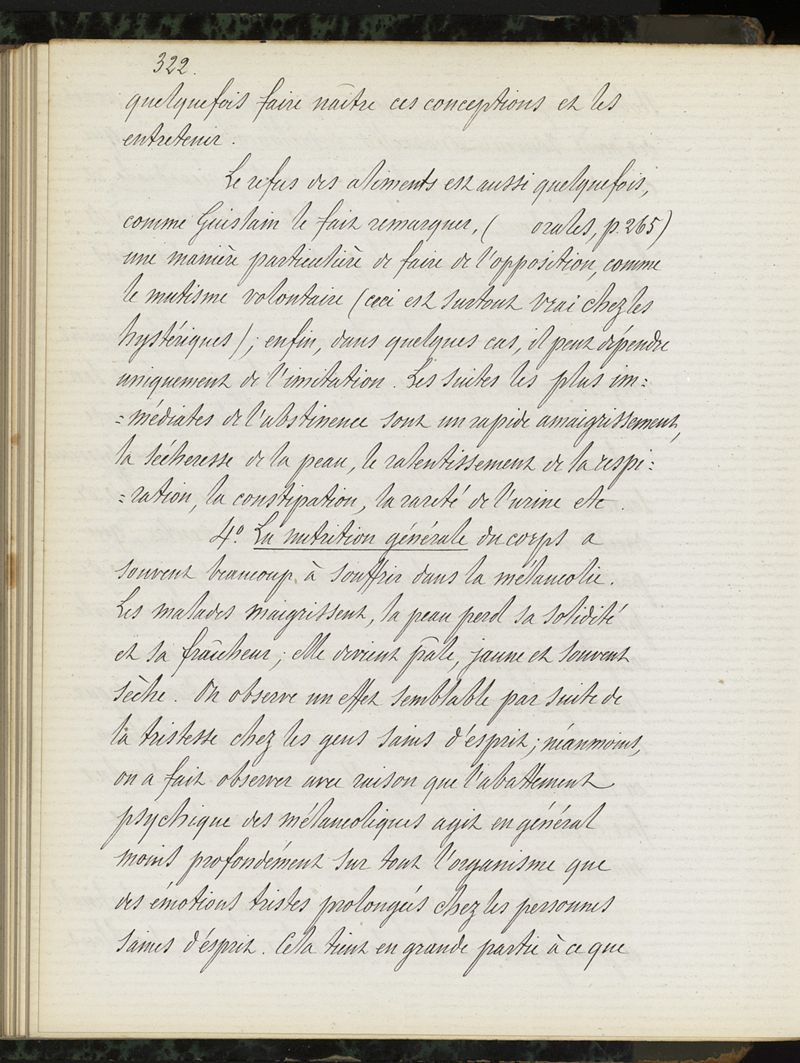 322.
quelquefois faire naître ces conceptions et les
entretenir.
Le refus des aliments est aussi quelquefois,
comme Guislain le fait remarquer, ( orales, p. 265)
une manière particulière de faire de l'opposition, comme
le mutisme volontaire (ceci est surtout vrai chez les
hystériques); enfin, dans quelques cas, il peut dépendre
uniquement de l'imitation. Les suites les plus im=
=médiates de l'abstinence sont un rapide amaigrissement,
la sécheresse de la peau, le ralentissement de la respi=
=ration, la constipation, la rareté de l'urine etc.
4° La nutrition générale du corps a
souvent beaucoup à souffrir dans la mélancolie.
Les malades maigrissent, la peau perd sa solidité
et sa fraîcheur; elle devient pâle, jaune et souvent
sèche. On observe un effet semblable par suite de
la tristesse chez les gens sains d'esprit; néanmoins,
on a fait observer avec raison que l'abattement
psychique des mélancoliques agit en général
moins profondément sur tout l'organisme que
des émotions tristes prolongées chez les personnes
saines d'ésprit. Cela tient en grande partie à ce que